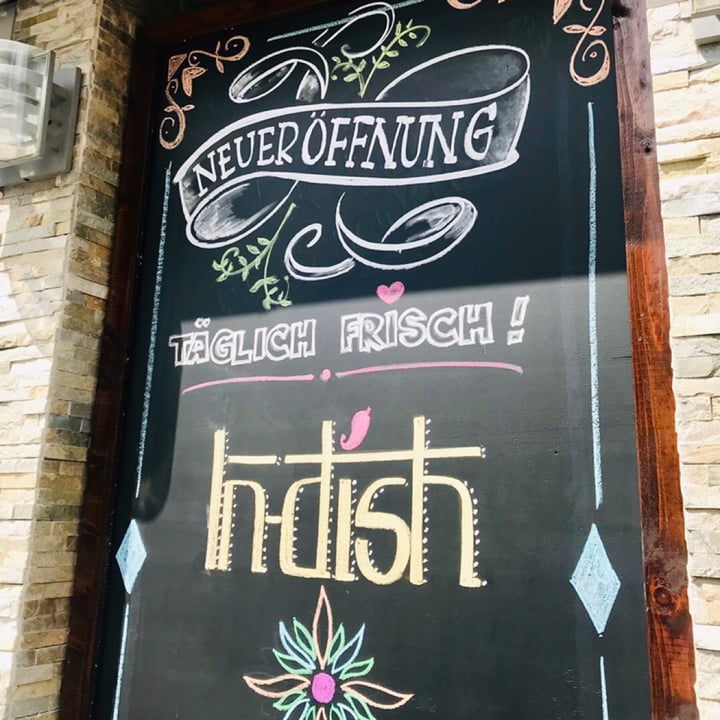 NEUERÖFFNUNG
TÄGLICH FRISCH!
In-dish